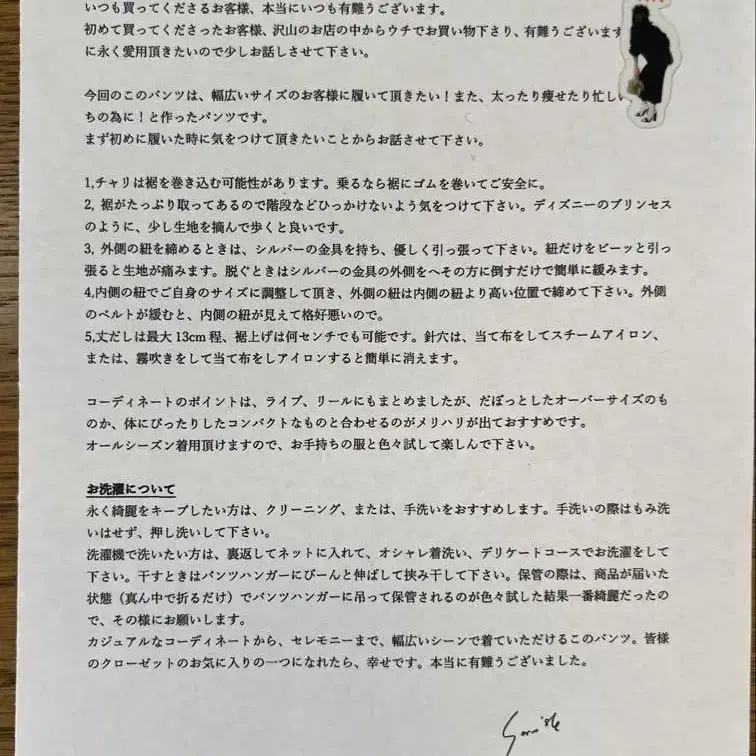 いつも買ってくださるお客様、本当にいつも有難うございます。
初めて買ってくださったお客様、沢山のお店の中からウチでお買い物下さり、有難うございます
に永く愛用頂きたいので少しお話しさせて下さい。
今回のこのパンツは、幅広いサイズのお客様に履いて頂きたい！また、太ったり痩せたり忙しい
ちの為に！と作ったパンツです。
まず初めに履いた時に気をつけて頂きたいことからお話させて下さい。
1,チャリは裾を巻き込む可能性があります。乗るなら裾にゴムを巻いてご安全に。
2, 裾がたっぷり取ってあるので階段などひっかけないよう気をつけて下さい。ディズニーのプリンセス
のように、少し生地を摘んで歩くと良いです。
3, 外側の紐を締めるときは、シルバーの金具を持ち、優しく引っ張って下さい。紐だけをビーッと引っ
張ると生地が痛みます。脱ぐときはシルバーの金具の外側をへその方に倒すだけで簡単に緩みます。
4,内側の紐でご自身のサイズに調整して頂き、外側の紐は内側の紐より高い位置で締めて下さい。外側
のベルトが緩むと、内側の紐が見えて格好悪いので。
5,丈だしは最大 13cm 程、裾上げは何センチでも可能です。針穴は、当て布をしてスチームアイロン、
または、霧吹きをして当て布をしアイロンすると簡単に消えます。
コーディネートのポイントは、ライブ、リールにもまとめましたが、だぼっとしたオーバーサイズのも
のか、体にぴったりしたコンパクトなものと合わせるのがメリハリが出ておすすめです。
オールシーズン着用頂けますので、お手持ちの服と色々試して楽しんで下さい。
お洗濯について
永く綺麗をキープしたい方は、クリーニング、または、手洗いをおすすめします。手洗いの際はもみ洗
いはせず、押し洗いして下さい。
洗濯機で洗いたい方は、裏返してネットに入れて、オシャレ着洗い、デリケートコースでお洗濯をして
下さい。干すときはパンツハンガーにびーんと伸ばして挟み干して下さい。保管の際は、商品が届いた
状態（真ん中で折るだけ）でパンツハンガーに吊って保管されるのが色々試した結果一番綺麗だったの
で、その様にお願いします。
カジュアルなコーディネートから、セレモニーまで、幅広いシーンで着ていただけるこのパンツ。皆様
のクローゼットのお気に入りの一つになれたら、幸せです。本当に有難うございました。